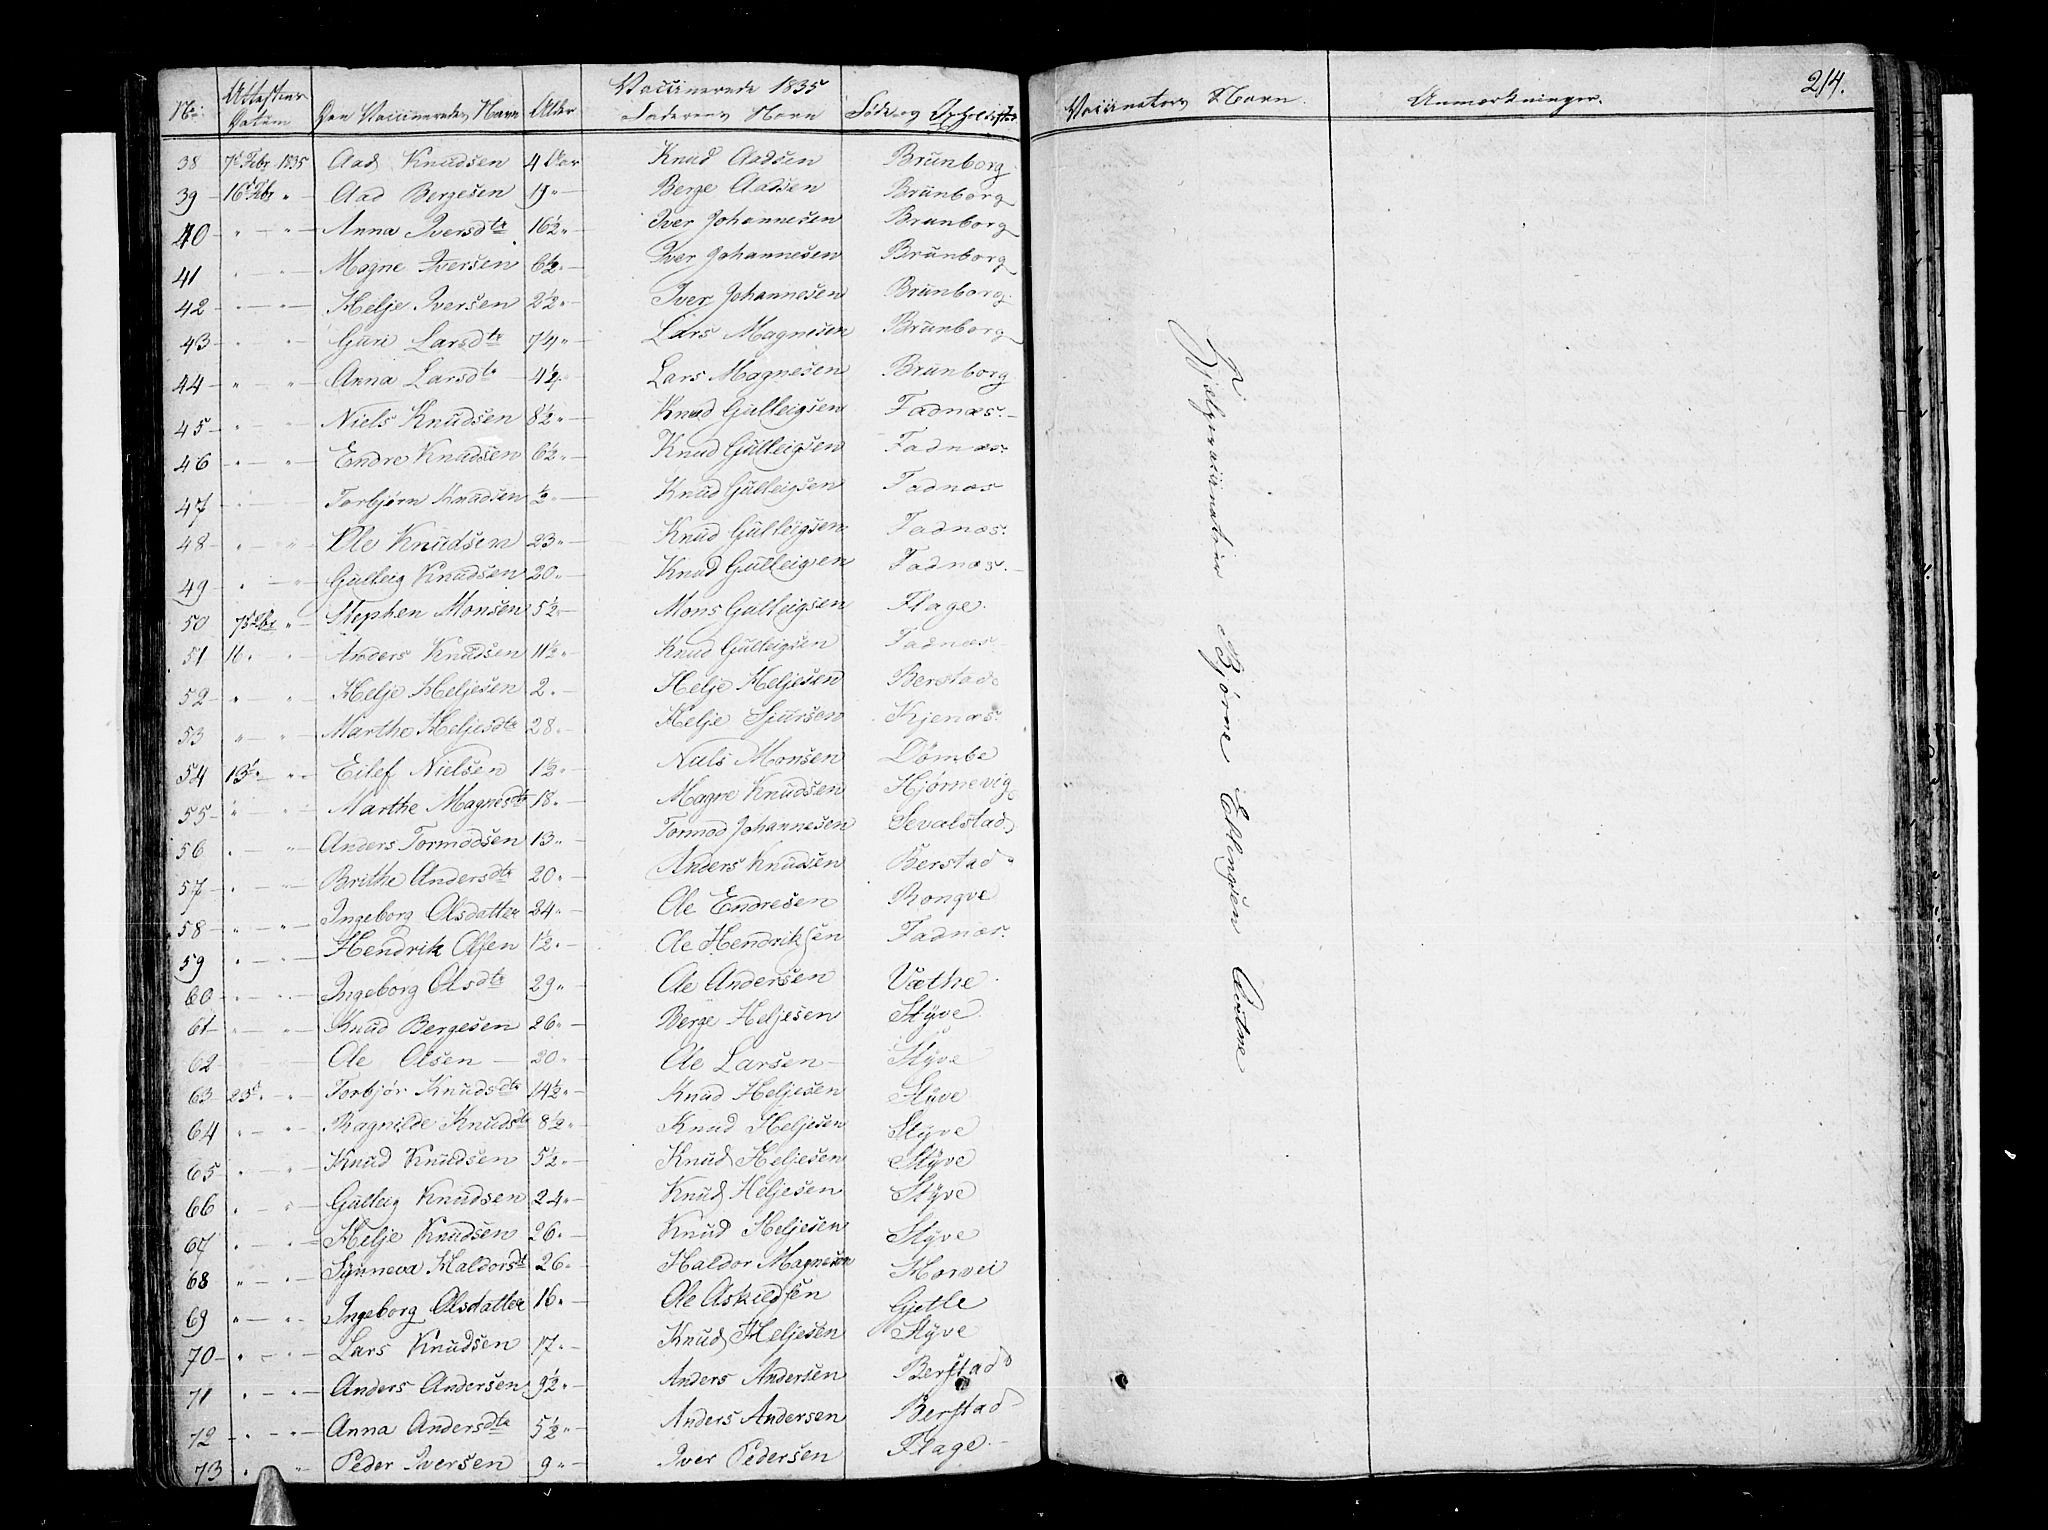 Vaccinerede 1835
No. Attestens Datum Den Vaccineredes Navn Alder Faderens Navn Føde og Opholdssted
38 7de Febr 1835 Aad Knudsen 4 Aar Knud Aadsen Brunborg
39 16de Febr " Aad Bergesen 19 " Berge Aadsen Brunborg
40 " " Anna Iversdtr 16½ " Iver Johannesen Brunborg
41 " " Magne Iversen 6½ " Iver Johannesen Brunborg
42 " " Helje Iversen 2½ " Iver Johannesen Brunborg
43 " " Guri Larsdtr 7¼ " Lars Magnesen Brunborg
44 " " Anna Larsdtr 4½ " Lars Magnesen Brunborg
45 " " Niels Knudsen 8½ " Knud Gulleigsen Fadnæs
46 " " Endre Knudsen 6½ " Knud Gulleigsen Fadnæs
47 " " Torbjørn Knudsen ½ " Knud Gulleigsen Fadnæs
48 " " Ole Knudsen 23 " Knud Gulleigsen Fadnæs
49 " " Gulleig Knudsen 20 " Knud Gulleigen Fadnæs
50 7de Febr " Stephen Monsen 5½ Mons Gulleigsen Flage
51 16 " " Anders Knudsen 11½ " Knud Gulleigsen Fadnæs
52 " " Helje Heljesen 2 " Helje Heljesen Berstad
53 " " Marthe Heljesdtr 28 " Helje Sjursen Kjenæs
54 13de " " Eilef Nielsen 1½ " Niels Monsen Dømbe
55 " " Marthe Magnesdtr 18 " Magne Knudsen Hjørnevig
56 " " Anders Tormodsen 13 " Tormod Johannesen Sevalstad
57 " " Brithe Andersdtr 20 " Anders Knudsen Berstad
58 " " Ingeborg Olsdatter 24 " Ole Endresen Rongve
59 " " Hendrik Olsen 1½ " Ole Hendriksen Fadnæs
60 " " Ingeborg Olsdtr 29 " Ole Andersen Væthe
61 " " Knud Bergesen 26 " Berge Heljesen Styve
62 " " Ole Olsen 20 " Ole Larsen Styve
63 25de " " Torbjør Knudsdtr 14½ " Knud Heljesen Styve
64 " " Ragnilde Knudsdtr 8½ " Knud Heljesen Styve
65 " " Knud Knudsen 5½ " Knud Heljesen Styve
66 " " Gulleig Knudsen 24 " Knud Heljesen Styve
67 " " Helje Knudsen 26 " Knud Heljesen Styve
68 " " Synneva Haldorsdtr 26 " Haldor Magnesen Horvei
69 " " Ingeborg Olsdatter 16 " Ole Askildsen Gjetle
70 " " Lars Knudsen 17 " Knud Heljesen Styve
71 " " Anders Andersen 9½ " Anders Andersen Berstad
72 " " Anna Andersdtr 5½ " Anders Andersen Berstad
73 " " Peder Iversen 9 " Iver Pedersen Flage
214.
Vaccinators Navn. Anmærkninger.
Hjelpevaccinatør Bjørne Erlengsen